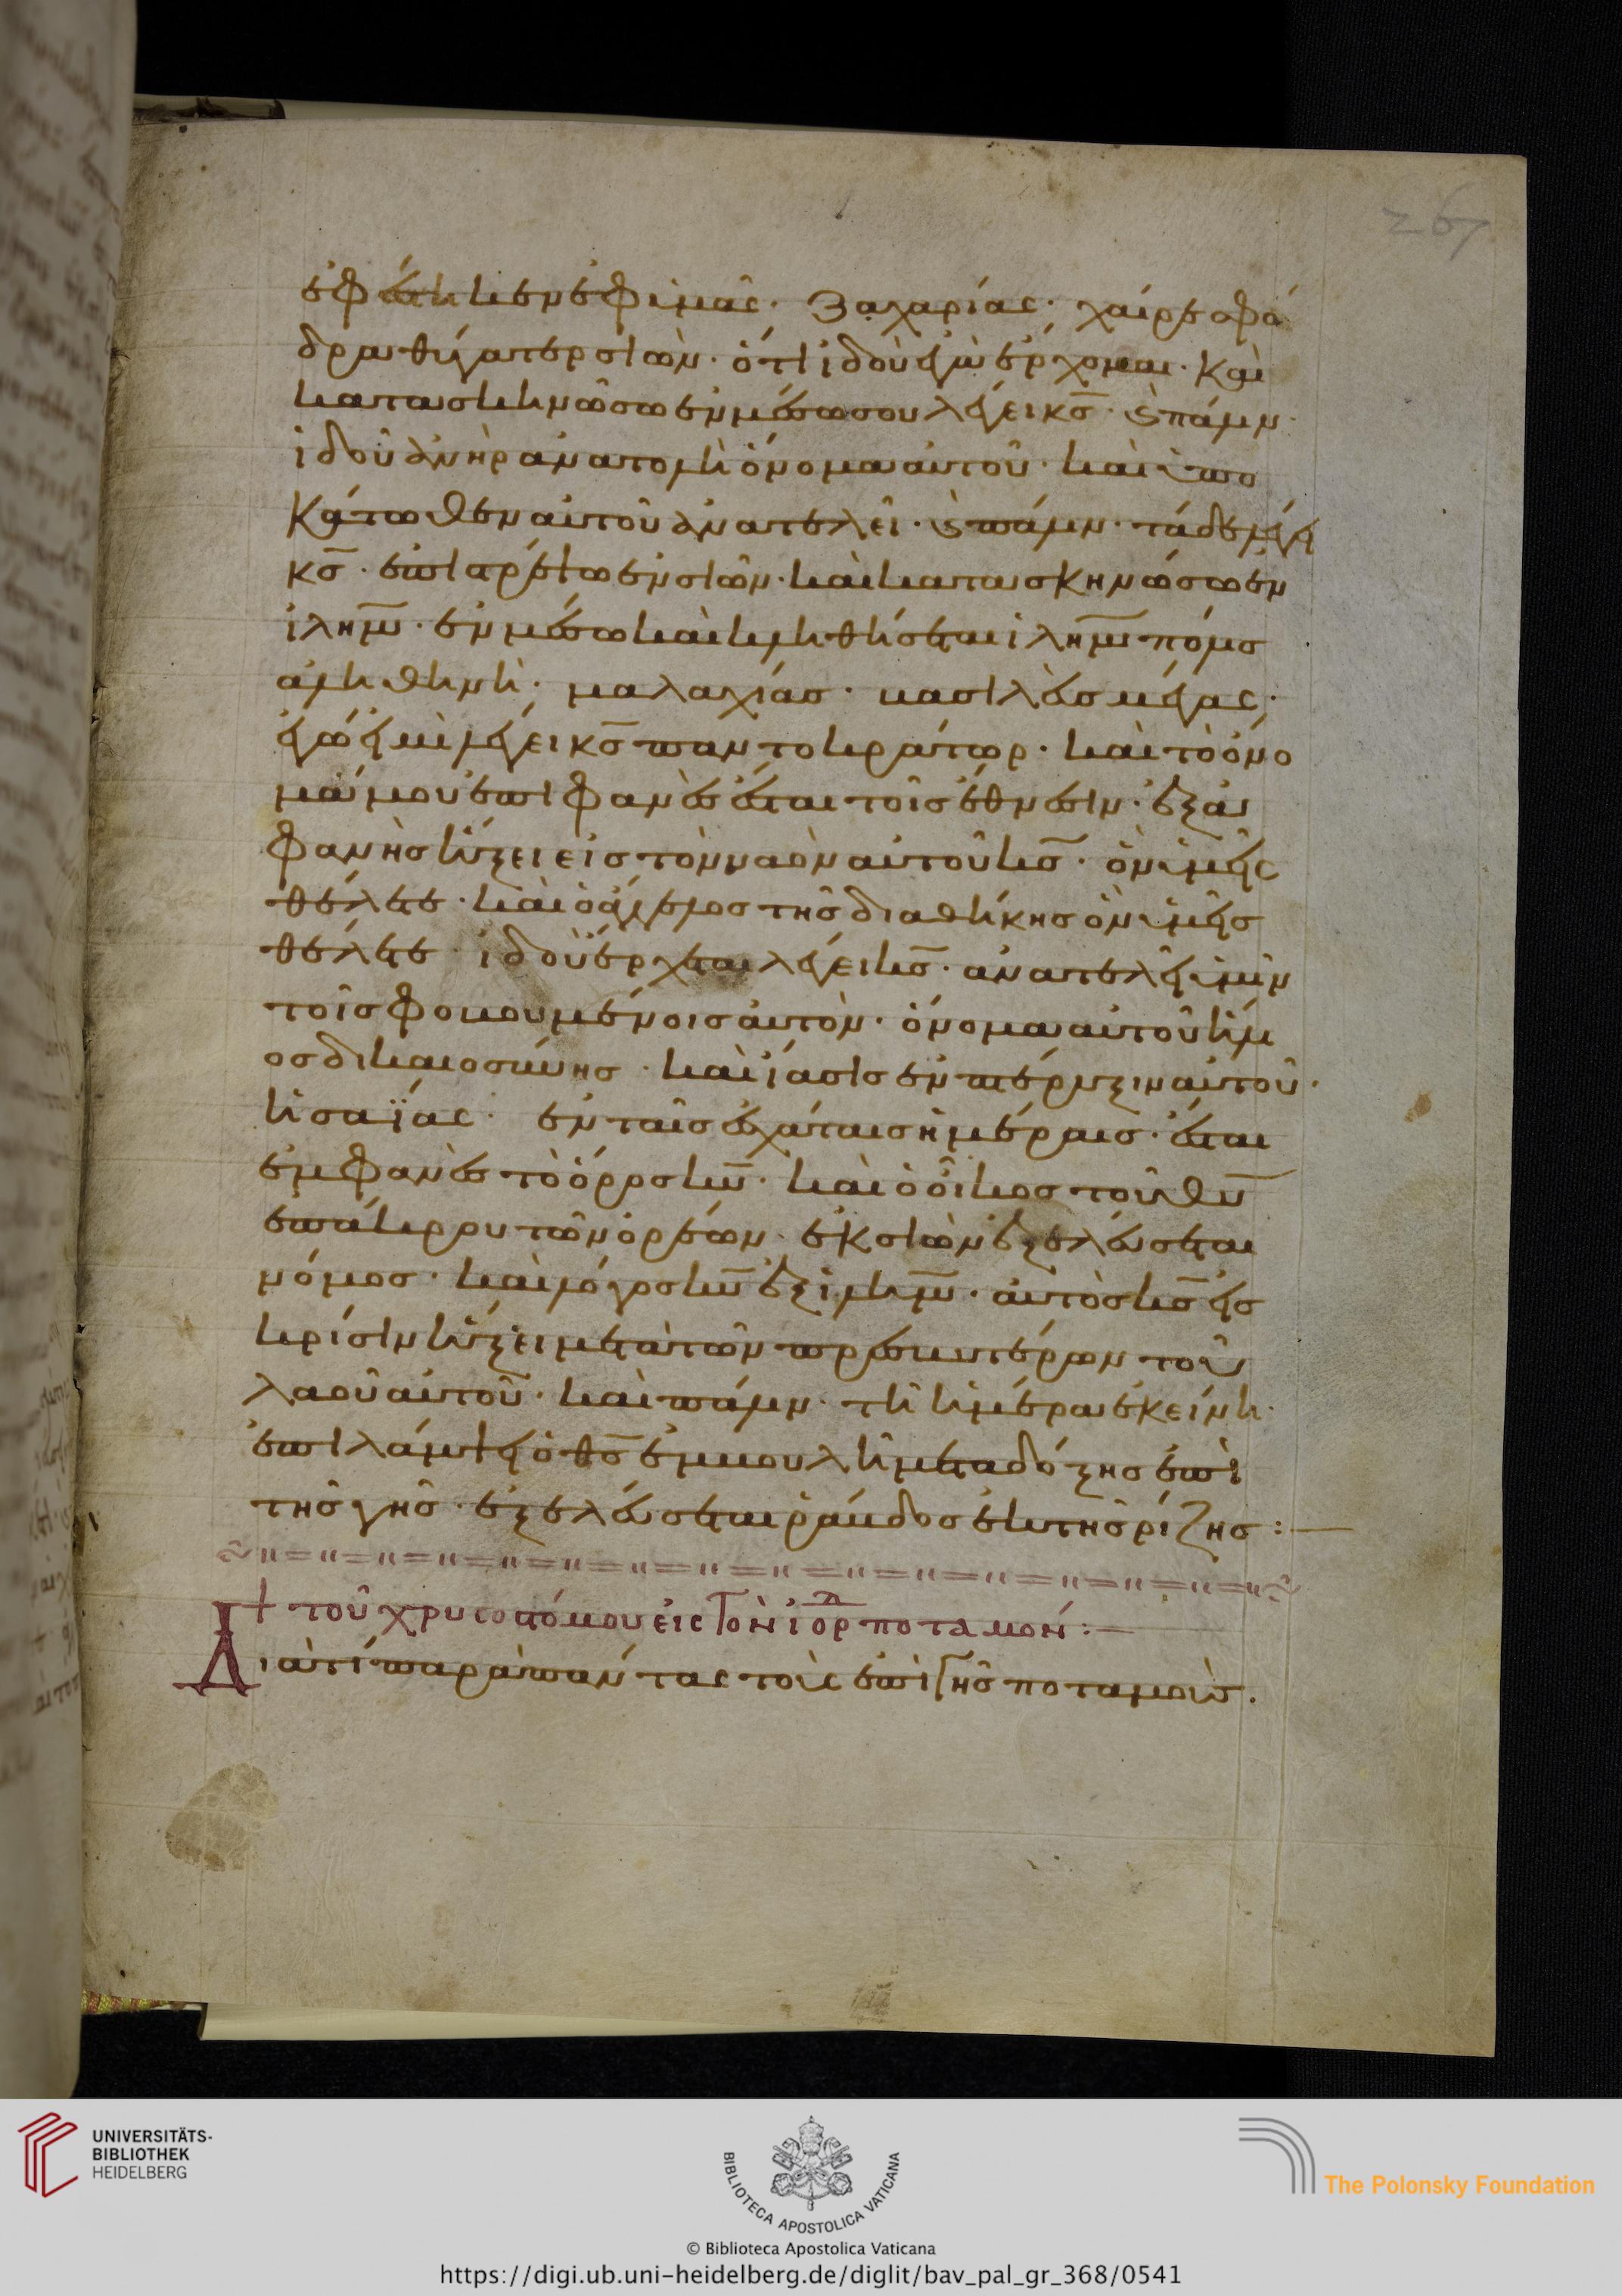 267
ἐφέστηκεν ἐφ' ὑμᾶς· Ζαχαρίας· χαῖρε σφό
δρα θύγατερ σιών· ὅτι ἰδοὺ ἐγὼ ἔρχομαι· καὶ
κατασκηνώσω ἐν μέσω σου λέγει κς· καὶ πάλιν·
ἰδοὺ ἀνὴρ ἀνατολὴ ὄνομα αὐτοῦ· καὶ ὑπο
κάτωθεν αὐτοῦ ἀνατελεῖ· καὶ πάλιν· τάδε λέγει
κς· ἐπιστρέψω ἐν σιών· καὶ κατασκηνώσω ἐν
ἰλημ· ἐν μέσω καὶ κληθήσεται ἰλημ πόλισ
ἀληθινή· μαλαχίασ· βασιλεὺσ μέγας·
ἐγώ εἰμι λέγει κς παντοκράτωρ· καὶ τὸ ὄνο
μά μου ἐπιφανὲς ἔσται τοῖσ ἔθνεσιν· ἐξαί
φνησ ἥξει εἰσ τὸν ναὸν αὐτοῦ κς· ὃν ὑμεῖς
θέλετε· καὶ ὁ ἄγγελος τῆσ διαθήκησ ὃν ὑμεῖσ
θέλετε· ἰδοὺ ἔρχεται λέγει κς· ἀνατελεῖ ὑμῖν
τοῖσ φοβουμένοισ αὐτόν· ὄνομα αὐτοῦ ἥλι
οσ δικαιοσύνησ· καὶ ἴασισ ἐν πτέρυξιν αὐτοῦ·
ἡσαΐας· ἐν ταῖσ ἐσχάταισ ἡμέραισ· ἔσται
ἐμφανὲσ τὸ ὄροσ κυ· καὶ ὁ οἶκοσ τοῦ θυ
ἐπ' ἄκρου τῶν ὀρέων· ἐκ σιὼν ἐξελεύσεται
νόμοσ· καὶ λόγοσ κυ ἐξ ἰλημ· αὐτὸσ κς εἰσ
κρίσιν ἥξει μετὰ τῶν πρεσβυτέρων τοῦ
λαοῦ αὐτοῦ· καὶ πάλιν· τῆ ἡμέρα ἐκείνη·
ἐπιλάμψει ὁ θς ἐμ βουλῆ μετὰ δόξησ ἐπὶ
τῆσ γῆσ· ἐξελεύσεται ῥάβδοσ ἐκ τῆσ ῥίζησ :—
+ τοῦ χρυσοστόμου εἰς τὸν ἰορδ ποταμόν :—
Διατί παρὰ πάντας τοὺς ἐπὶ γῆσ ποταμούσ.
UNIVERSITÄTS-
BIBLIOTHEK
HEIDELBERG
BIBLIOTECA APOSTOLICA VATICANA
The Polonsky Foundation
© Biblioteca Apostolica Vaticana
https://digi.ub.uni-heidelberg.de/diglit/bav_pal_gr_368/0541